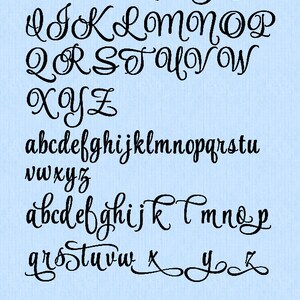 IJKLMNOP
QRSTUVW
XYZ
abcdefghijklmnopqrstu
vwxyz
abcdefghijklmnop
qrstuvwxyz